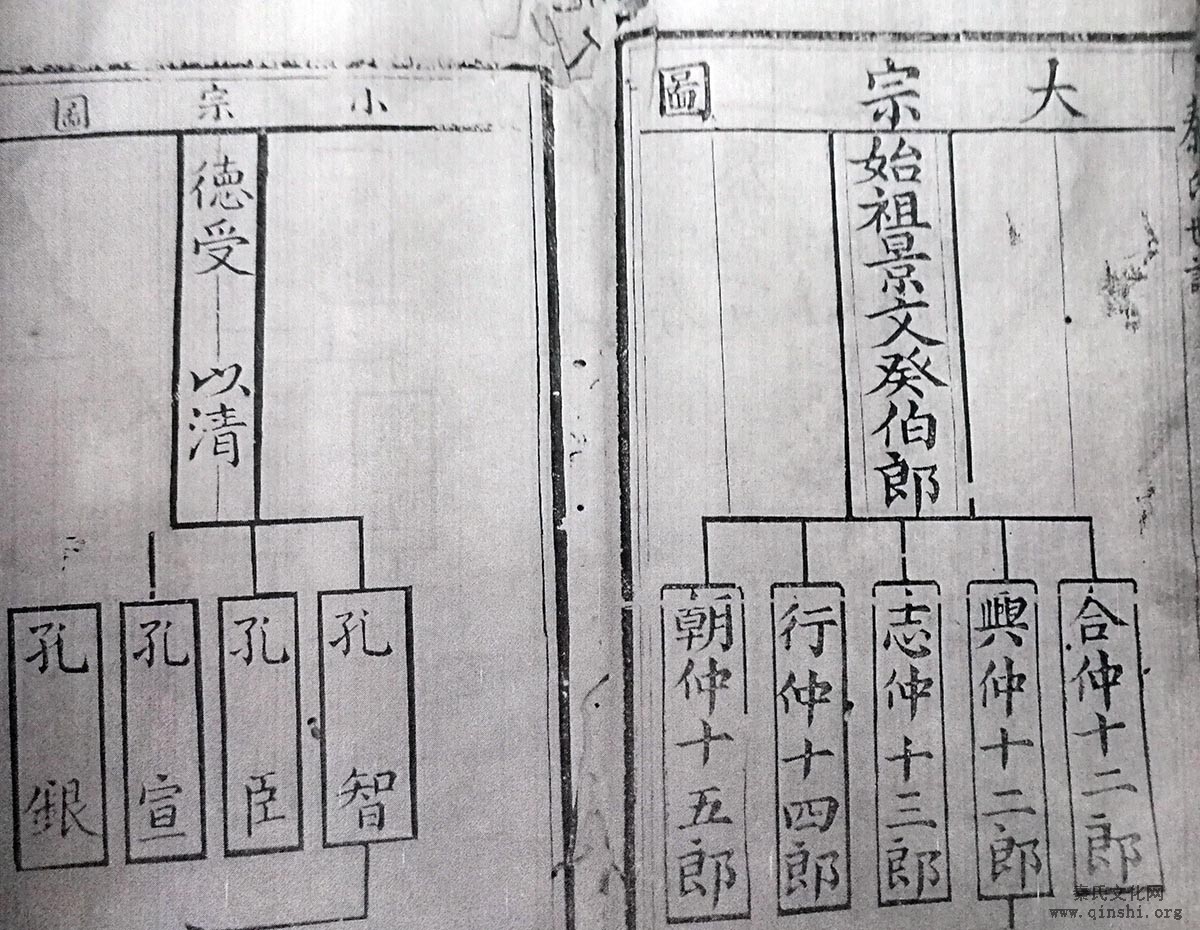 大宗圖
始祖景文癸伯郎
合仲十二郎
興仲十二郎
志仲十三郎
行仲十四郎
朝仲十五郎
小宗圖
德受 以清
孔智
孔臣
孔宣
孔銀
秦氏文化网
www.qinshi.org